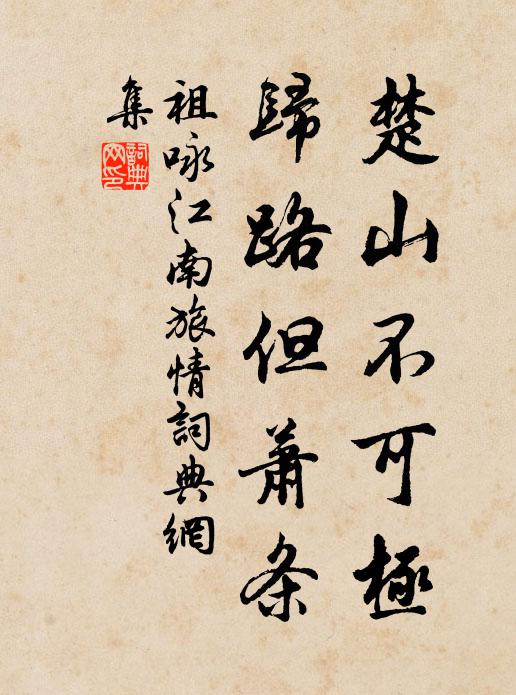 楚山不可極
歸路但蕭条
祖咏江南旅情詞典網
集
詞典
网印